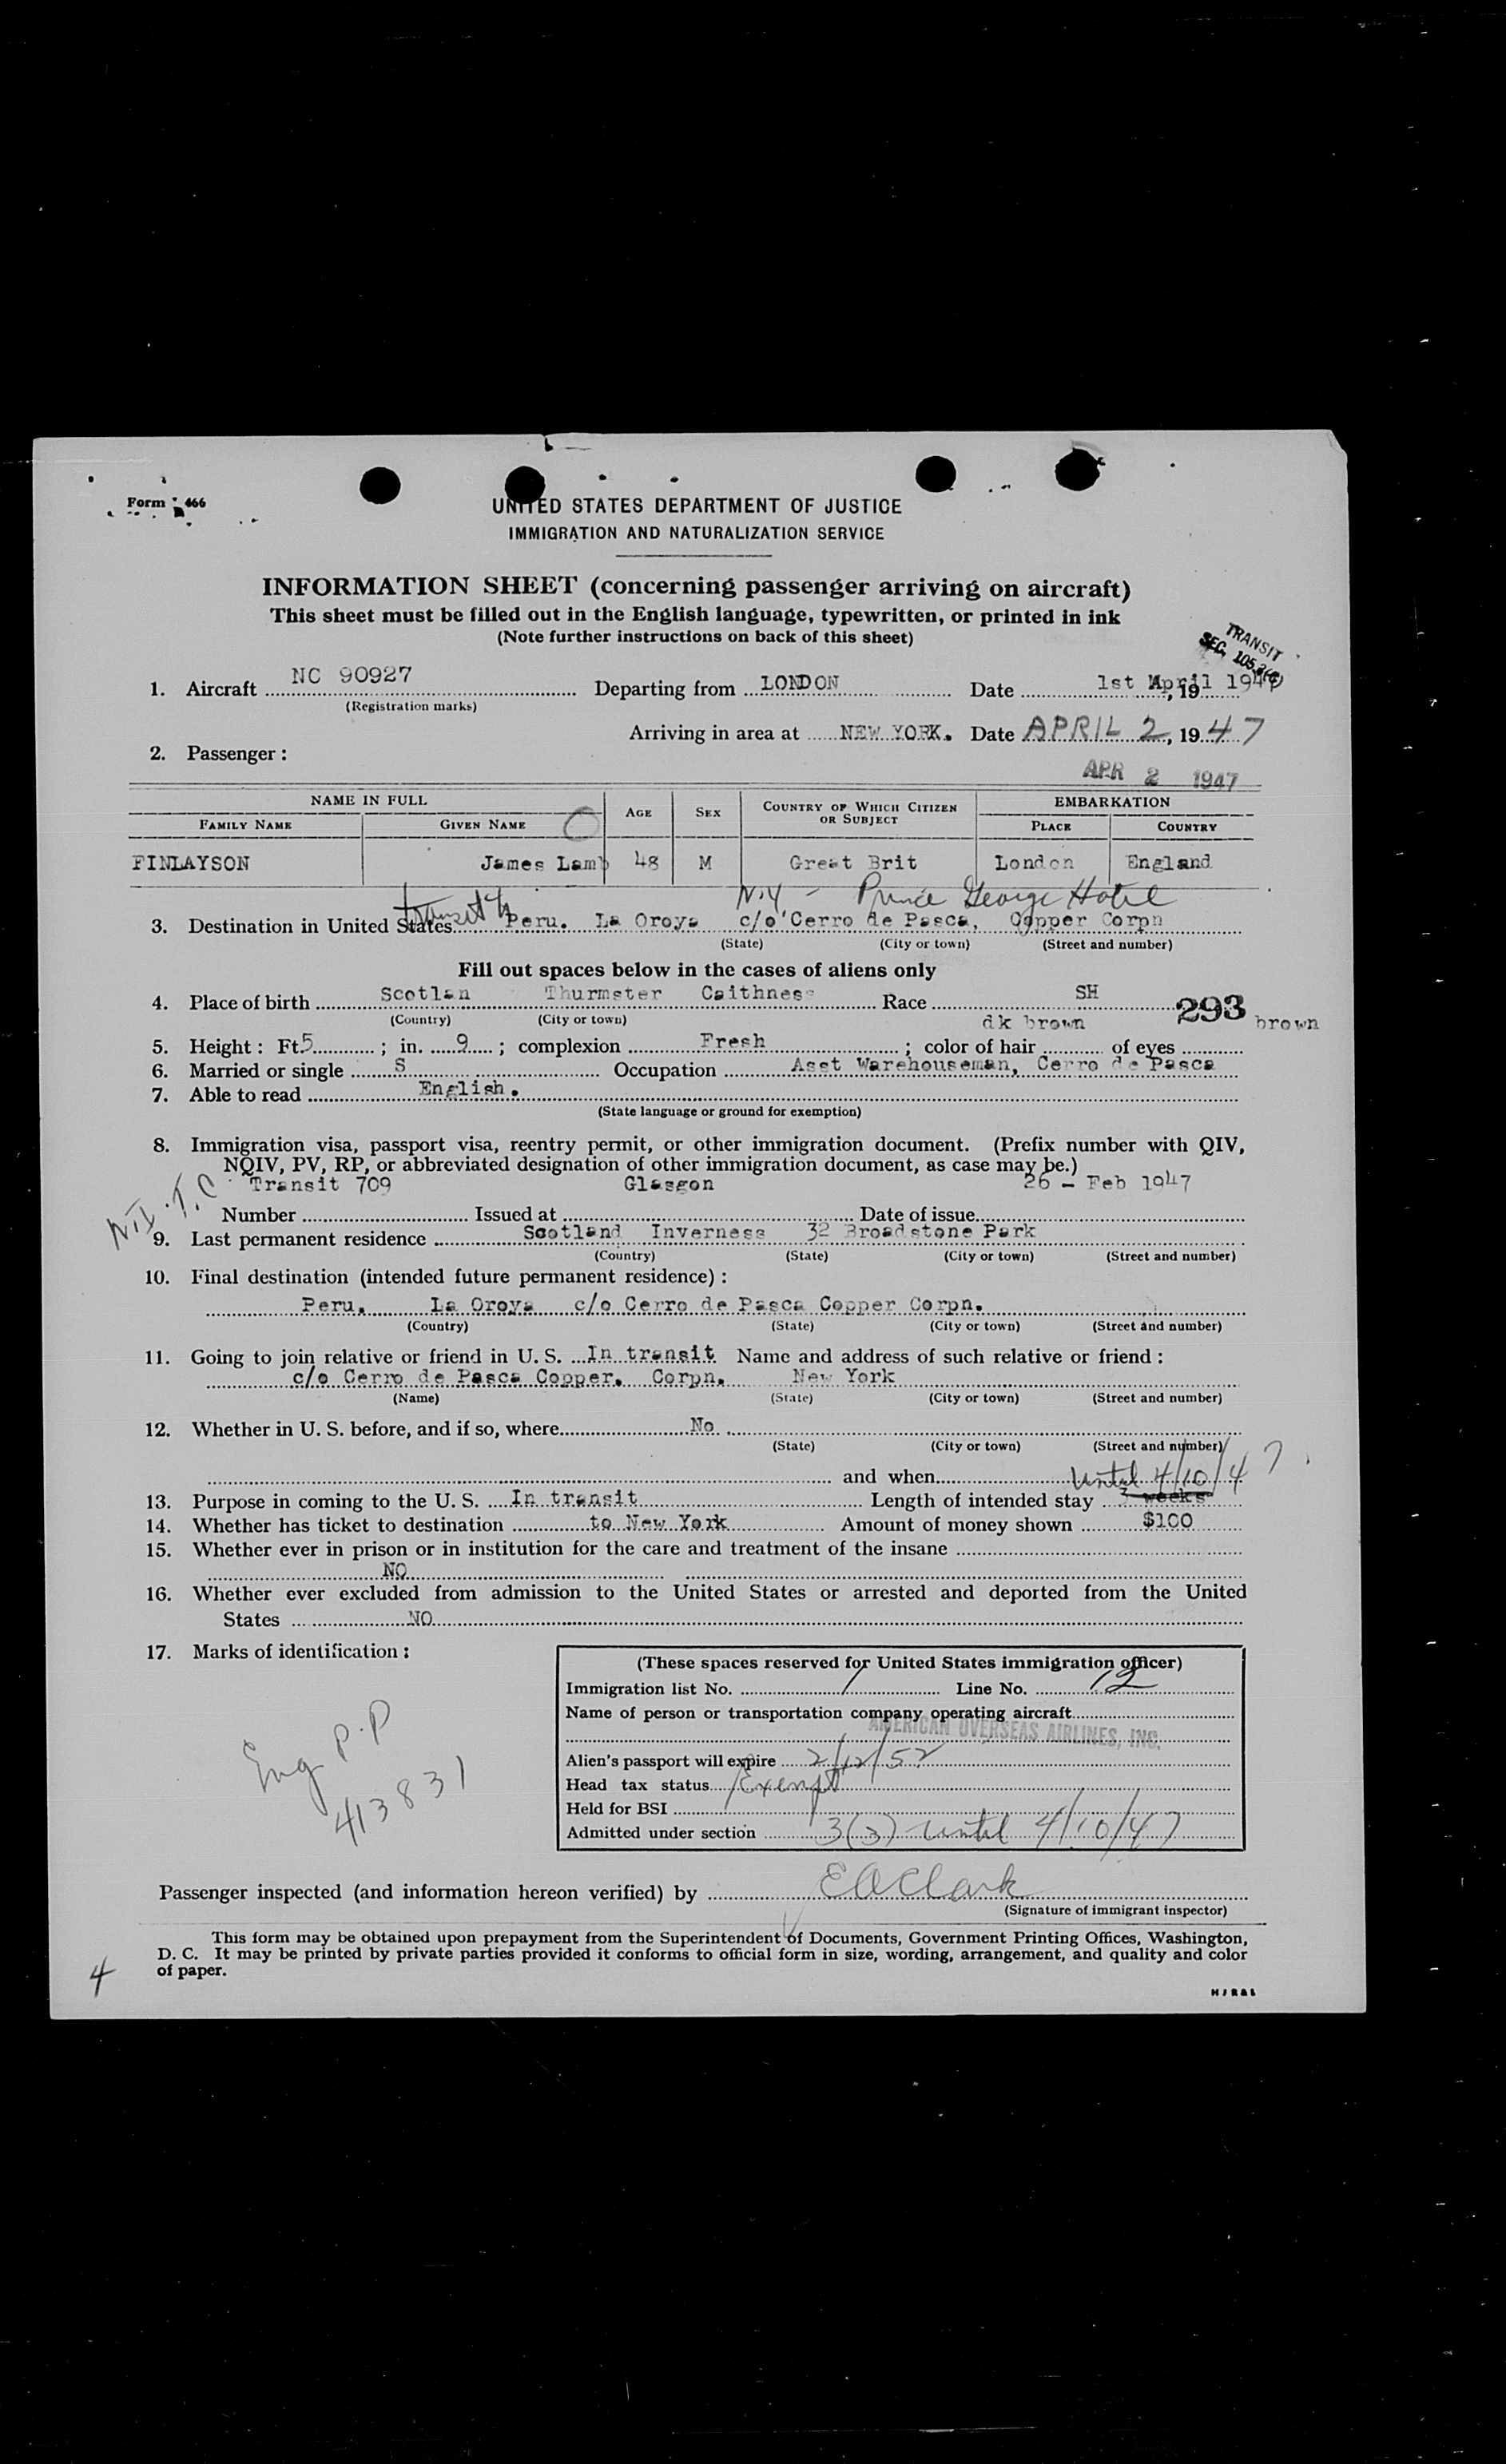 Form 466
UNITED STATES DEPARTMENT OF JUSTICE
IMMIGRATION AND NATURALIZATION SERVICE
INFORMATION SHEET (concerning passenger arriving on aircraft)
This sheet must be filled out in the English language, typewritten, or printed in ink
(Note further instructions on back of this sheet)
TRANSIT
SEC. 105.3(c)
1. Aircraft NC 90927 Departing from LONDON Date 1st April 1947, 19
(Registration marks)
Arriving in area at NEW YORK. Date APRIL 2, 1947
2. Passenger:
APR 2 1947
NAME IN FULL AGE SEX COUNTRY OF WHICH CITIZEN OR SUBJECT EMBARKATION
FAMILY NAME GIVEN NAME PLACE COUNTRY
FINLAYSON James Lamb 48 M Great Brit London England
N.Y - Prince George Hotel
3. Destination in United States transit to Peru. La Oroya c/o Cerro de Pasca, Copper Corpn
(State) (City or town) (Street and number)
Fill out spaces below in the cases of aliens only
4. Place of birth Scotlan Thurmster Caithness Race SH 293
(Country) (City or town)
5. Height: Ft. 5; in. 9; complexion Fresh; color of hair dk brown of eyes brown
6. Married or single S Occupation Asst Warehouseman, Cerro de Pasca
7. Able to read English.
(State language or ground for exemption)
8. Immigration visa, passport visa, reentry permit, or other immigration document. (Prefix number with QIV,
NQIV, PV, RP, or abbreviated designation of other immigration document, as case may be.)
N.I.T.C
Transit 709 Glasgon 26 - Feb 1947
Number Issued at Date of issue
9. Last permanent residence Scotland Inverness 32 Broadstone Park
(Country) (State) (City or town) (Street and number)
10. Final destination (intended future permanent residence):
Peru. La Oroya c/o Cerro de Pasca Copper Corpn.
(Country) (State) (City or town) (Street and number)
11. Going to join relative or friend in U. S. In transit Name and address of such relative or friend:
c/o Cerro de Pasca Copper. Corpn. New York
(Name) (State) (City or town) (Street and number)
12. Whether in U. S. before, and if so, where No
(State) (City or town) (Street and number)
and when
until 4/10/47
13. Purpose in coming to the U. S. In transit Length of intended stay 3 weeks
14. Whether has ticket to destination to New York Amount of money shown $100
15. Whether ever in prison or in institution for the care and treatment of the insane
NO
16. Whether ever excluded from admission to the United States or arrested and deported from the United
States NO
17. Marks of identification:
Eng P.P
413831
(These spaces reserved for United States immigration officer)
Immigration list No. 1 Line No. 12
Name of person or transportation company operating aircraft
AMERICAN OVERSEAS AIRLINES, INC.
Alien's passport will expire 2/12/52
Head tax status Exempt
Held for BSI
Admitted under section 3(3) until 4/10/47
Passenger inspected (and information hereon verified) by E A Clark
(Signature of immigrant inspector)
This form may be obtained upon prepayment from the Superintendent of Documents, Government Printing Offices, Washington,
D. C. It may be printed by private parties provided it conforms to official form in size, wording, arrangement, and quality and color
of paper.
4